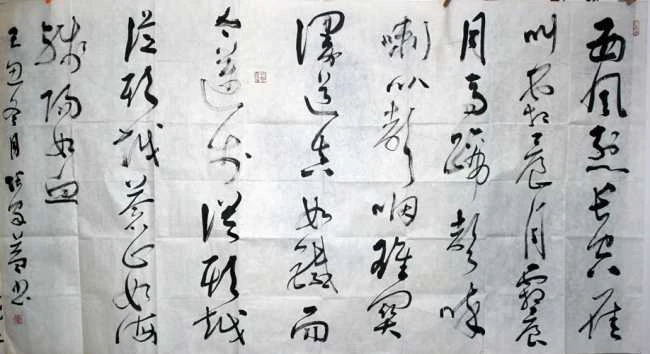 西风烈长空雁
叫霜晨月霜晨
月马蹄声碎
喇叭声咽雄关
漫道真如铁而
今迈步从头越
从头越苍山如海
残阳如血
冬月 书